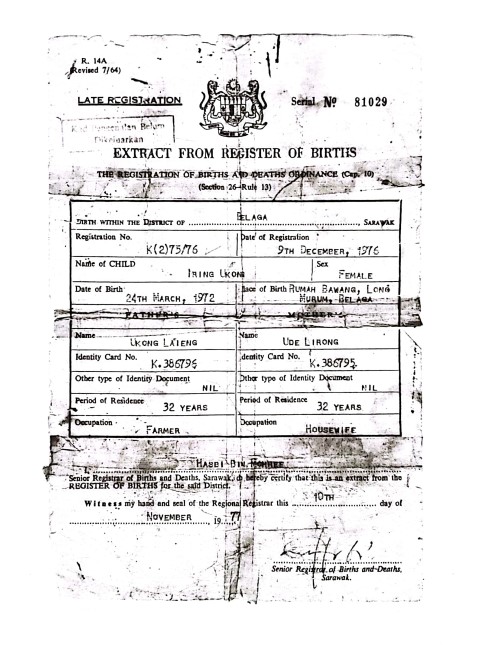 R. 14A
(Revised 7/64)
LATE REGISTRATION
Serial No 81029
Belum
Dikeluarkan
EXTRACT FROM REGISTER OF BIRTHS
THE REGISTRATION OF BIRTHS AND DEATHS ORDINANCE (Cap. 10)
(Section 26–Rule 13)
BIRTH WITHIN THE DISTRICT OF BELAGA SARAWAK
Registration No. K(2)75/76
Date of Registration 9TH DECEMBER, 1976
Name of CHILD IRING UKONG
Sex FEMALE
Date of Birth 24TH MARCH, 1972
Place of Birth RUMAH BAWANG, LONG
MURUM, BELAGA
FATHER'S MOTHER'S
Name UKONG LAIENG
Name UDE LIRONG
Identity Card No. K.386796
Identity Card No. K.386795
Other type of Identity Document NIL
Other type of Identity Document NIL
Period of Residence 32 YEARS
Period of Residence 32 YEARS
Occupation FARMER
Occupation HOUSEWIFE
BIN
Senior Registrar of Births and Deaths, Sarawak, do hereby certify that this is an extract from the
REGISTER OF BIRTHS for the said District.
Witness my hand and seal of the Regional Registrar this 10TH day of
NOVEMBER 1977
Senior Registrar of Births and Deaths,
Sarawak.